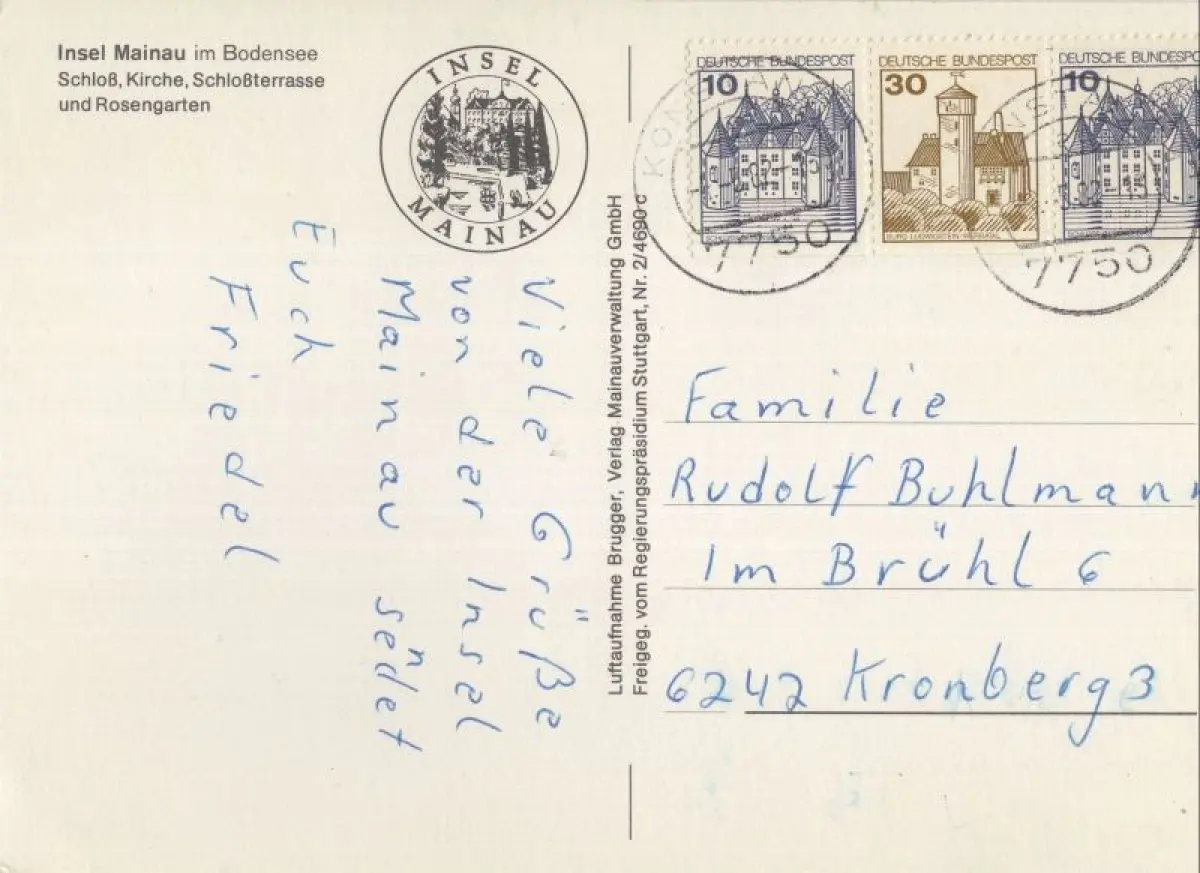 Insel Mainau im Bodensee
Schloß, Kirche, Schloßterrasse
und Rosengarten
INSEL
MAINAU
Viele Grüße
von der Insel
Mainau sendet
Euch
Friedel
Luftaufnahme Brugger, Verlag Mainauverwaltung GmbH
Freigeg. vom Regierungspräsidium Stuttgart, Nr. 2/4690 c
DEUTSCHE BUNDESPOST
10
DEUTSCHE BUNDESPOST
30
BURG LUDWIGSTEIN
DEUTSCHE BUNDESPOST
10
7750
7750
Familie
Rudolf Buhlmann
Im Brühl 6
6242 Kronberg 3